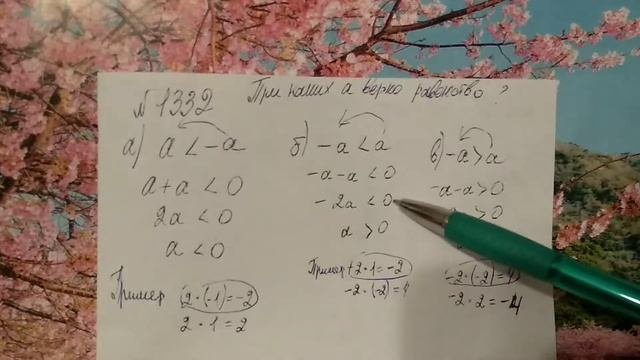 №1332 При каких а верно равенство?
а) а < -а
а+а < 0
2а < 0
а < 0
Пример 2·(-1)=-2
2·1=2
б) -а < а
-а-а < 0
-2а < 0
а > 0
Пример +2·1=-2
-2·(-2)=4
в) -а > а
-а-а > 0
> 0
-2·(-2)=4
-2·2=-4